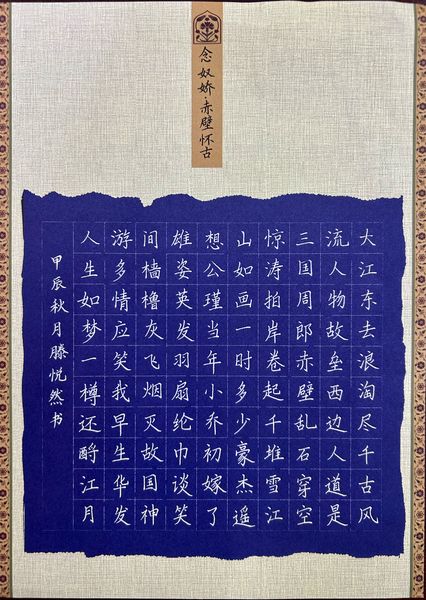 念奴娇·赤壁怀古
大江东去浪淘尽千古风
流人物故垒西边人道是
三国周郎赤壁乱石穿空
惊涛拍岸卷起千堆雪江
山如画一时多少豪杰遥
想公瑾当年小乔初嫁了
雄姿英发羽扇纶巾谈笑
间樯橹灰飞烟灭故国神
游多情应笑我早生华发
人生如梦一樽还酹江月
甲辰秋月滕悦然书